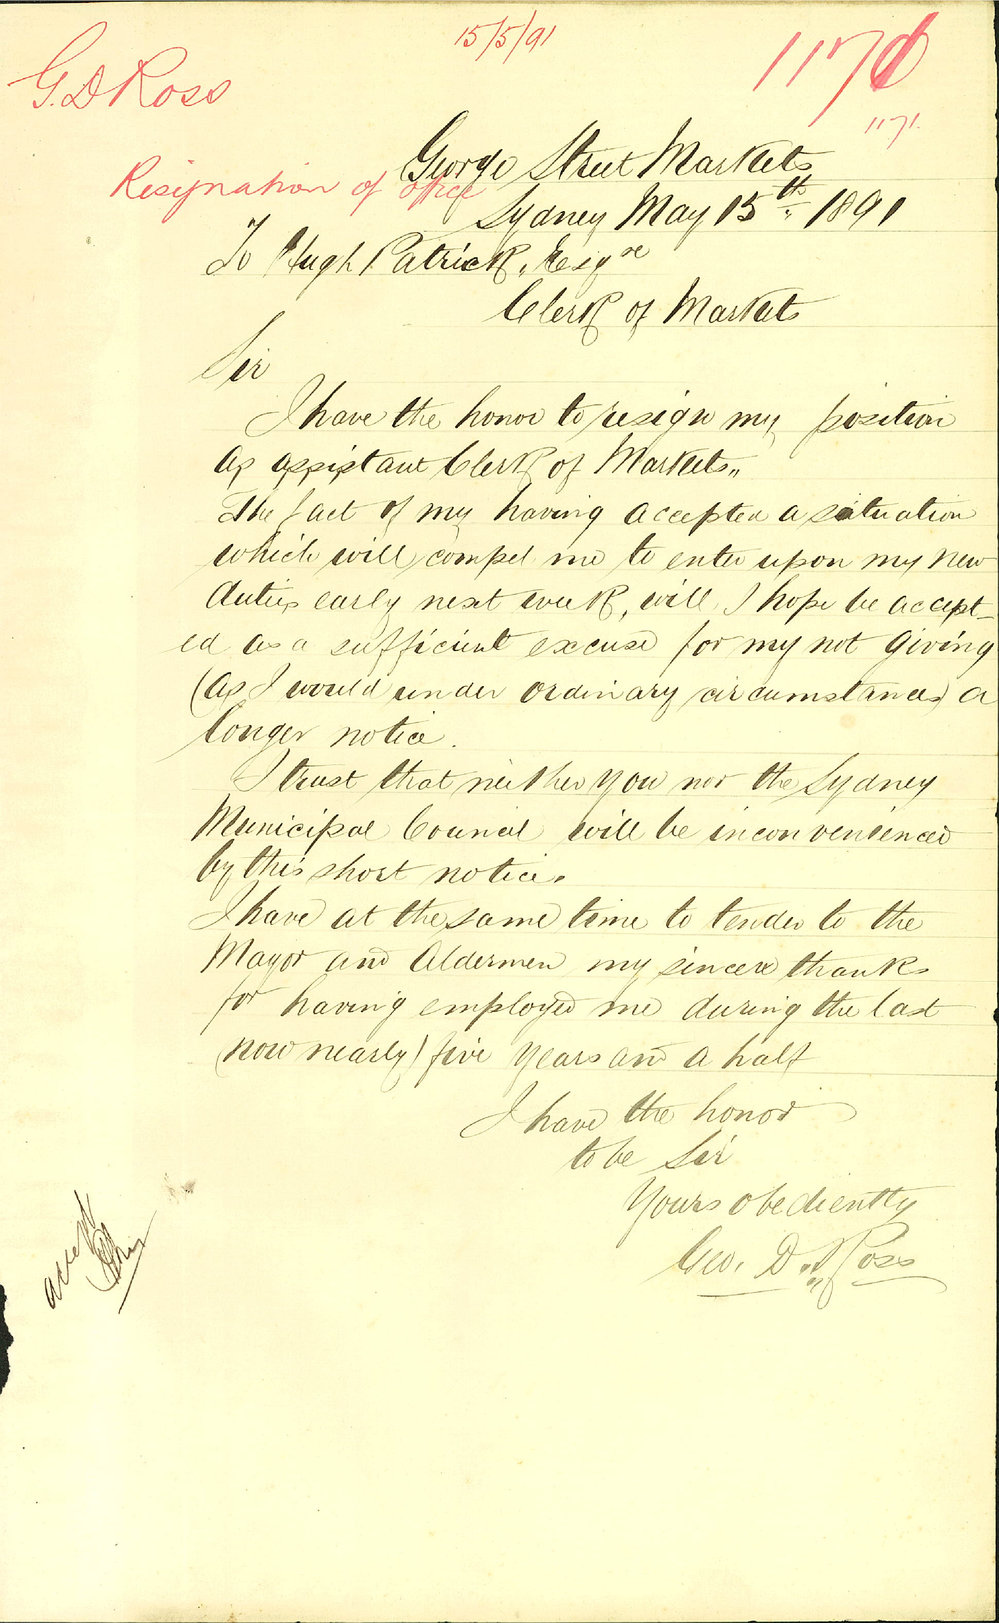 15/5/91
G. D Ross
1171.
Resignation of office
George Street Markets
Sydney May 15th. 1891
To Hugh Patrick, Esqre
Clerk of Markets
Sir
I have the honor to resign my position
as assistant Clerk of Markets,,
The fact of my having accepted a situation
which will compel me to enter upon my new
duties early next week, will I hope be accept-
ed as a sufficient excuse for my not giving
(as I would under ordinary circumstances) a
longer notice.
I trust that neither you nor the Sydney
Municipal Council will be inconvenienced
by this short notice.
I have at the same time to tender to the
Mayor and Aldermen my sincere thanks
for having employed me during the last
(now nearly) five years and a half
I have the honor
to be Sir
Yours obediently
Geo. D. Ross